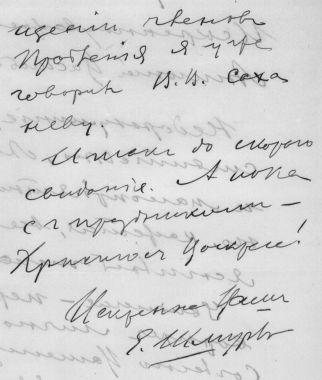 ждении членов
Правления я уже
говорил В. В. Саха
неву.
Итак до скорого
свидания. А пока
с праздником –
Христос Воскресе!
Искренне Ваш
Е. Шмурло